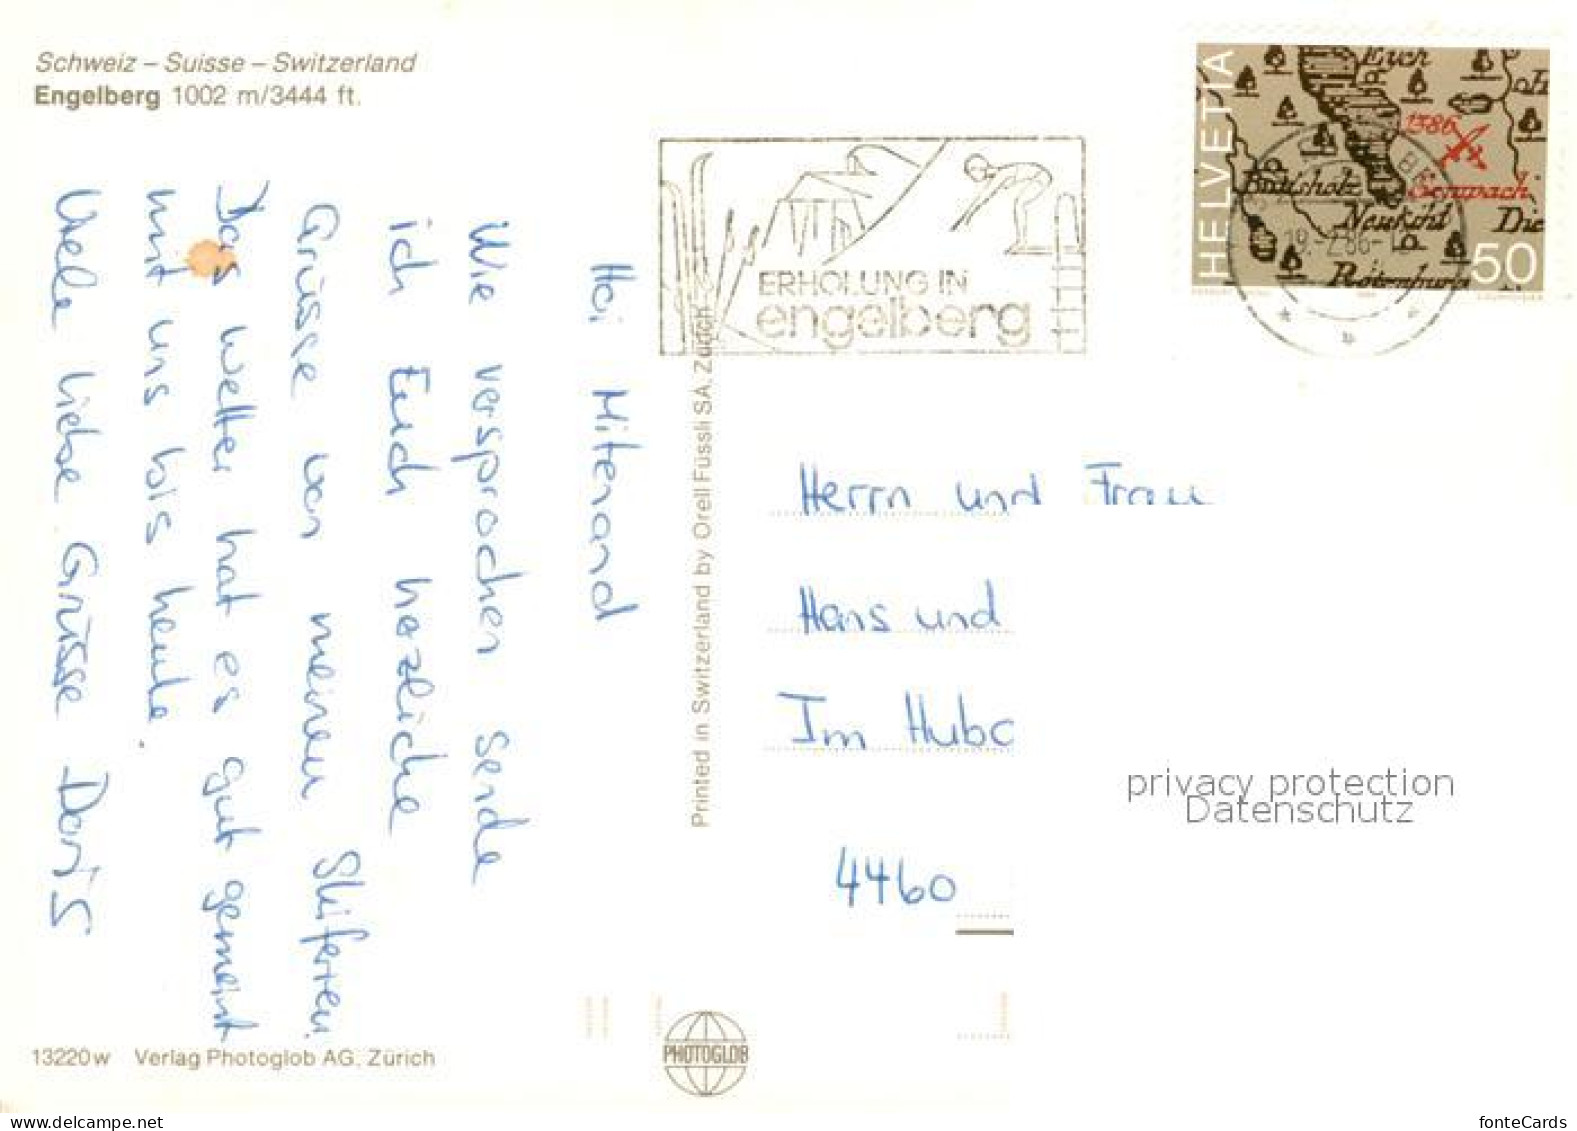 Schweiz – Suisse – Switzerland
Engelberg 1002 m/3444 ft.
Hoi Mitenand
Wie versprochen sende
ich Euch herzliche
Grüsse von meinen Skiferien.
Das Wetter hat es gut gemeint
mit uns bis heute.
Viele liebe Grüsse Doris
13220w Verlag Photoglob AG, Zürich
Printed in Switzerland by Orell Füssli SA, Zürich
PHOTOGLOB
ERHOLUNG IN
engelberg
HELVETIA
Eich
1386
Sempach
Buttisholz
Neukichl
Die
Rotenburg
50
19.-2.86-
Herrn und Frau
Hans und
Im Hub
4460
privacy protection
Datenschutz
www.delcampe.net
fonteCards